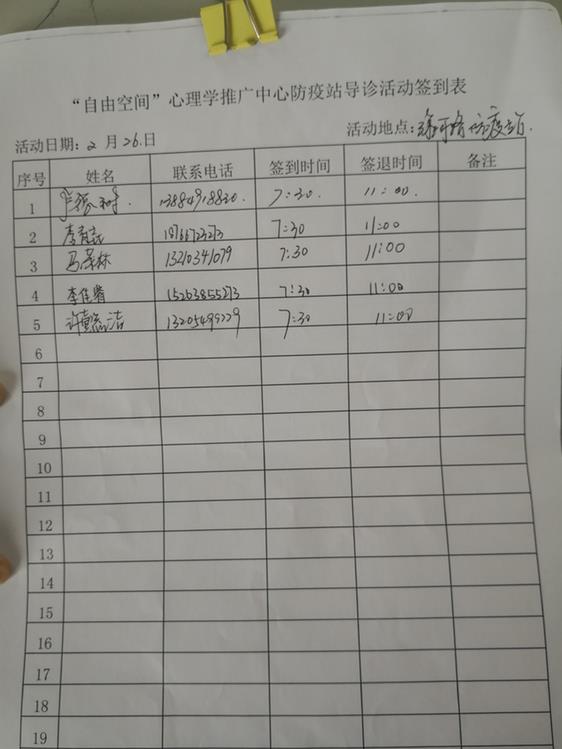 “自由空间”心理学推广中心防疫站导诊活动签到表
活动日期: 2 月 26.日 活动地点: 防疫站.
序号 姓名 联系电话 签到时间 签退时间 备注
1 13884918830. 7:30. 11:00.
2 李 7:30 11:00
3 马荣林 13210341079 7:30 11:00
4 李佳睿 15263855273 7:30 11:00
5 许 洁 13205499229 7:30 11:00
6
7
8
9
10
11
12
13
14
15
16
17
18
19